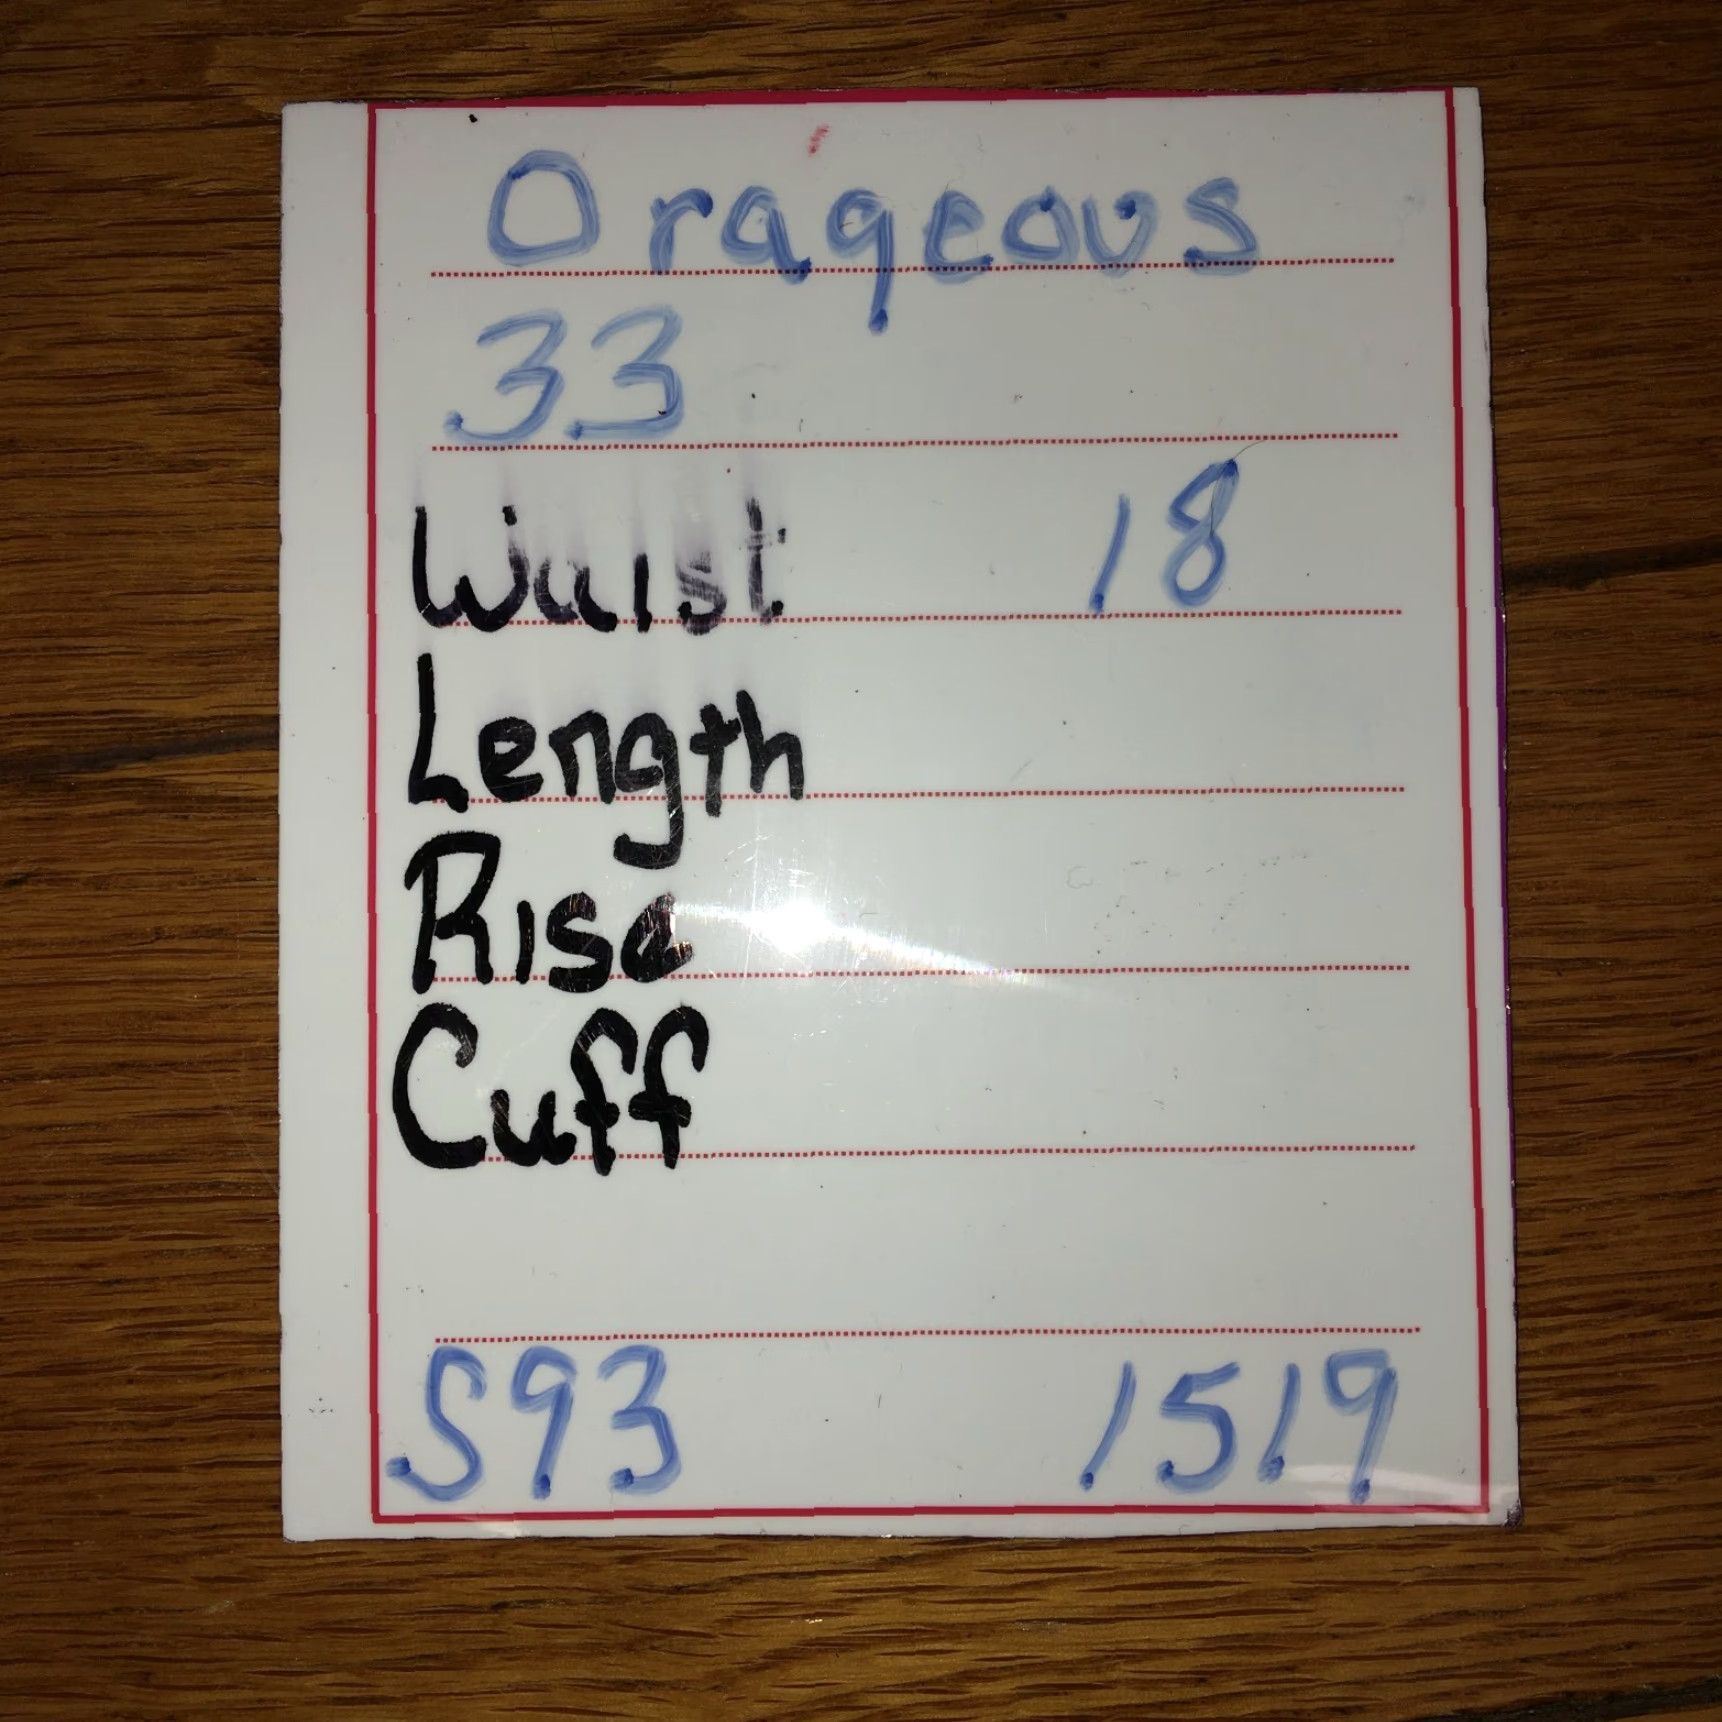 Orageous
33
Waist 18
Length
Rise
Cuff
S93 1519